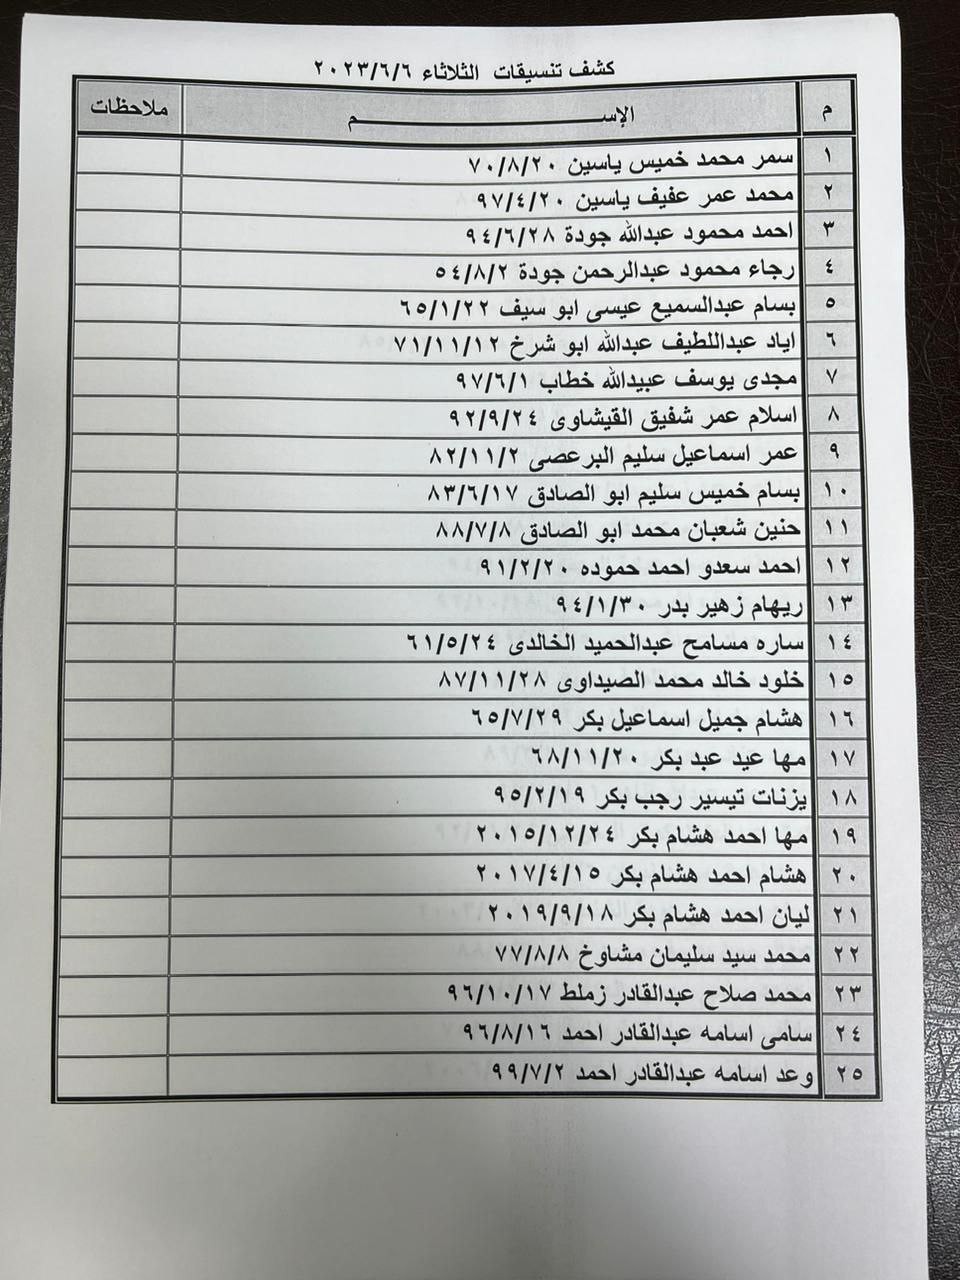 كشف تنسيقات الثلاثاء ٢٠٢٣/٦/٦
م الإســــــــم ملاحظات
١ سمر محمد خميس ياسين ٧٠/٨/٢٠
٢ محمد عمر عفيف ياسين ٩٧/٤/٢٠
٣ احمد محمود عبدالله جودة ٩٤/٦/٢٨
٤ رجاء محمود عبدالرحمن جودة ٥٤/٨/٢
٥ بسام عبدالسميع عيسى ابو سيف ٦٥/١/٢٢
٦ اياد عبداللطيف عبدالله ابو شرخ ٧١/١١/١٢
٧ مجدى يوسف عبيدالله خطاب ٩٧/٦/١
٨ اسلام عمر شفيق القيشاوى ٩٢/٩/٢٤
٩ عمر اسماعيل سليم البرعصى ٨٢/١١/٢
١٠ بسام خميس سليم ابو الصادق ٨٣/٦/١٧
١١ حنين شعبان محمد ابو الصادق ٨٨/٧/٨
١٢ احمد سعدو احمد حموده ٩١/٢/٢٠
١٣ ريهام زهير بدر ٩٤/١/٣٠
١٤ ساره مسامح عبدالحميد الخالدى ٦١/٥/٢٤
١٥ خلود خالد محمد الصيداوى ٨٧/١١/٢٨
١٦ هشام جميل اسماعيل بكر ٦٥/٧/٢٩
١٧ مها عيد عبد بكر ٦٨/١١/٢٠
١٨ يزنات تيسير رجب بكر ٩٥/٢/١٩
١٩ مها احمد هشام بكر ٢٠١٥/١٢/٢٤
٢٠ هشام احمد هشام بكر ٢٠١٧/٤/١٥
٢١ ليان احمد هشام بكر ٢٠١٩/٩/١٨
٢٢ محمد سيد سليمان مشاوخ ٧٧/٨/٨
٢٣ محمد صلاح عبدالقادر زملط ٩٦/١٠/١٧
٢٤ سامى اسامه عبدالقادر احمد ٩٦/٨/١٦
٢٥ وعد اسامه عبدالقادر احمد ٩٩/٧/٢